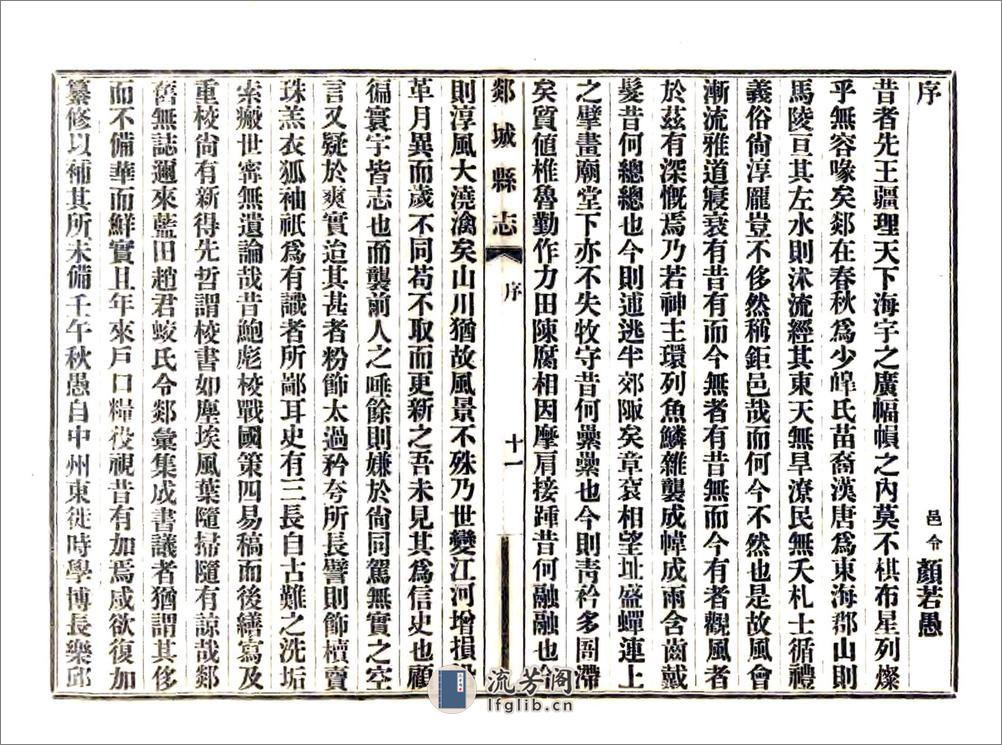 序
邑令顏若愚
昔者先王疆理天下海宇之廣幅幀之內莫不棋布星列燦
乎無容喙矣郯在春秋為少皥氏苗裔漢唐為東海郡山則
馬陵亘其左水則沭流經其東天無旱潦民無夭札士循禮
義俗尙淳龎豈不侈然稱鉅邑哉而何今不然也是故風會
漸流雅道寖衰有昔有而今無者有昔無而今有者觀風者
於茲有深慨焉乃若神主環列魚鱗雜襲成幃成雨含齒戴
髮昔何總總也今則逋逃半郊陬矣章袞相望址盛蟬連上
之擘畫廟堂下亦不失牧守昔何纍纍也今則靑衿多固滯
矣質値椎魯勤作力田陳腐相因摩肩接踵昔何融融也今
郯城縣志 序 十一
則淳風大澆漓矣山川猶故風景不殊乃世變江河增損
革月異而歲不同苟不取而更新之吾未見其為信史也顧
徧寰宇皆志也而襲前人之唾餘則嫌於尙同駕無實之空
言又疑於爽實迨其甚者粉飾太過矜夸所長譬則飾櫝賣
珠羔衣狐袖祇為有識者所鄙耳史有三長自古難之洗垢
索瘢世寗無遺論哉昔鮑彪校戰國策四易稿而後繕寫及
重校尙有新得先哲謂校書如塵埃風葉隨掃隨有諒哉郯
舊無誌邇來藍田趙君蛟氏令郯彙集成書議者猶謂其侈
而不備華而鮮實且年來戶口糧役視昔有加焉咸欲復加
纂修以補其所未備壬午秋愚自中州東徙時學博長樂邱
流芳閣
lfglib.cn